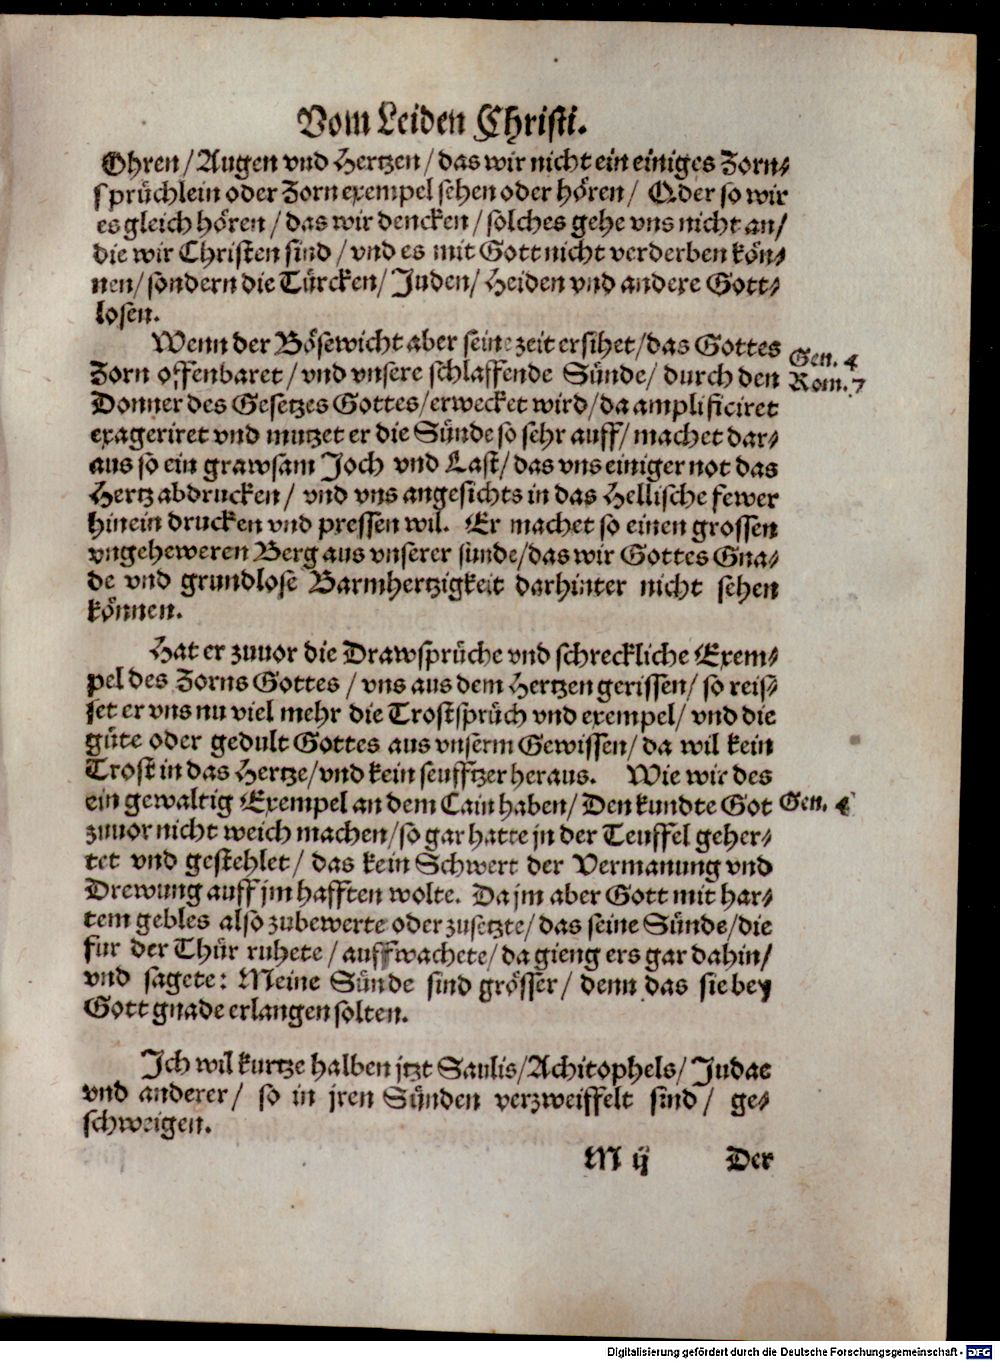 Vom Leiden Christi.
Ohren / Augen vnd Hertzen / das wir nicht ein einiges Zorn-
sprüchlein oder Zornexempel sehen oder hören / Oder so wir
es gleich hören / das wir dencken / solches gehe vns nicht an /
die wir Christen sind / vnd es mit Gott nicht verderben kön-
nen / sondern die Türcken / Juden / Heiden vnd andere Gott-
losen.
Wenn der Bösewicht aber seine zeit ersihet / das Gottes
Gen. 4
Zorn offenbaret / vnd vnsere schlaffende Sünde / durch den
Rom. 7
Donner des Gesetzes Gottes / erwecket wird / da amplificiret
exageriret vnd mutzet er die Sünde so sehr auff / machet dar-
aus so ein grawsam Joch vnd Last / das vns einiger not das
Hertz abdrucken / vnd vns angesichts in das Hellische fewer
hinein drucken vnd pressen wil. Er machet so einen grossen
vngeheweren Berg aus vnserer sünde / das wir Gottes Gna-
de vnd grundlose Barmhertzigkeit darhinter nicht sehen
können.
Hat er zuuor die Drawsprüche vnd schreckliche Exem-
pel des Zorns Gottes / vns aus dem Hertzen gerissen / so reis-
set er vns nu viel mehr die Trostsprüch vnd exempel / vnd die
güte oder gedult Gottes aus vnserm Gewissen / da wil kein
Trost in das Hertze / vnd kein seufftzer heraus. Wie wir des
ein gewaltig Exempel an dem Cain haben / Den kundte Got
Gen. 4
zuuor nicht weich machen / so gar hatte jn der Teuffel geher-
tet vnd gestehlet / das kein Schwert der Vermanung vnd
Drewung auff jm hafften wolte. Da jm aber Gott mit har-
tem gebles also zubewerte oder zusetzte / das seine Sünde / die
fur der Thür ruhete / auffwachete / da gieng ers gar dahin /
vnd sagete: Meine Sünde sind grösser / denn das sie bey
Gott gnade erlangen solten.
Ich wil kurtze halben jtzt Saulis / Achitophels / Judae
vnd anderer / so in jren Sünden verzweiffelt sind / ge-
schweigen.
M ij Der
Digitalisierung gefördert durch die Deutsche Forschungsgemeinschaft - DFG